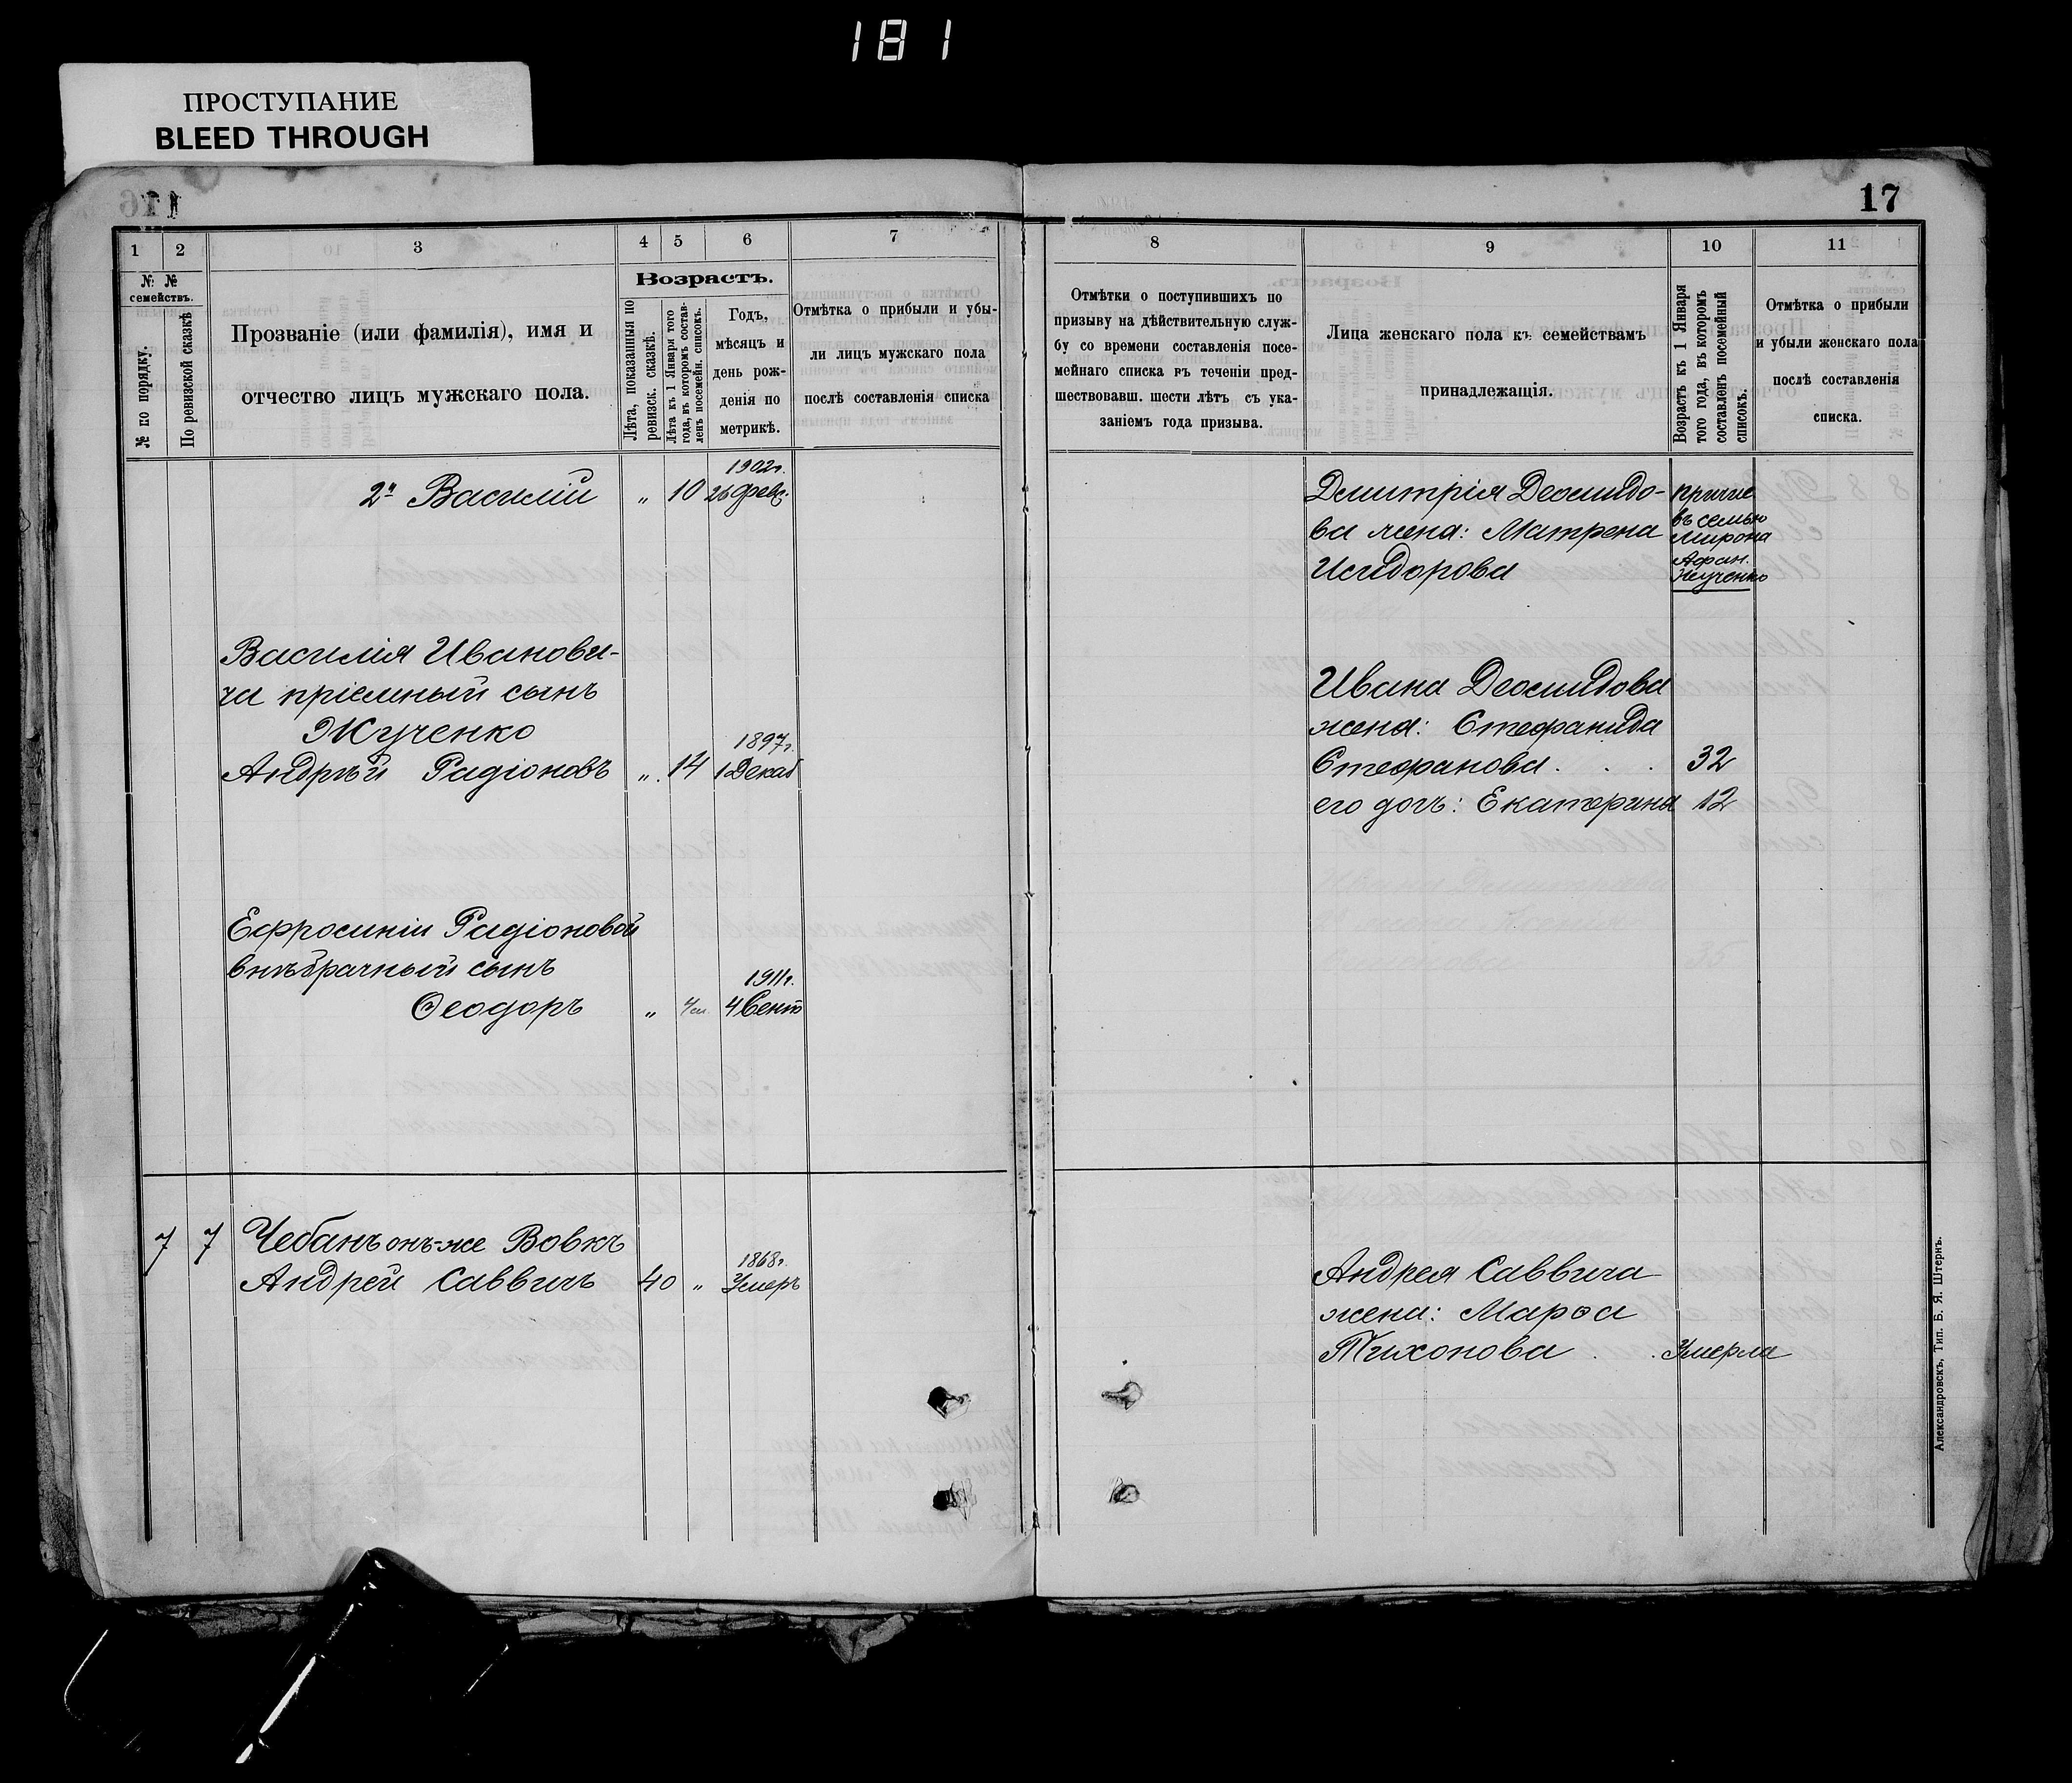 181
ПРОСТУПАНИЕ
BLEED THROUGH
17
1 2 3 4 5 6 7
№ № семействъ.
№ по порядку.
По ревизской сказкѣ
Прозваніе (или фамилія), имя и
отчество лицъ мужскаго пола.
Возрастъ.
Лѣта, показанныя по
ревизск. сказкѣ.
Лѣта къ 1 Января того
года, въ которомъ состав-
ленъ посемейн. списокъ.
Годъ,
мѣсяцъ и
день рож-
денія по
метрикѣ.
Отмѣтка о прибыли и убы-
ли лицъ мужскаго пола
послѣ составленія списка
1902г.
2й Василій „ 10 26 февр.
Василія Иванови-
ча пріемный сынъ
Жученко
1897г.
Андрѣй Радіоновъ „ 14 1 Декаб
Ефросиніи Радіоновой
внѣбрачный сынъ
1911г.
Ѳеодоръ „ 4м. 4 Сент
7 7 Чебанъ онъ-же Вовкъ
1868г.
Андрей Саввичъ 40 „ Умеръ
8 9 10 11
Отмѣтки о поступившихъ по
призыву на дѣйствительную служ-
бу со времени составленія посе-
мейнаго списка въ теченіи пред-
шествовавш. шести лѣтъ съ ука-
заніемъ года призыва.
Лица женскаго пола къ семействамъ
принадлежащія.
Возрастъ къ 1 Января
того года, въ которомъ
составленъ посемейный
списокъ.
Отмѣтка о прибыли
и убыли женскаго пола
послѣ составленія
списка.
Дмитрія Деомидо-
ва жена: Матрена
Исидорова
причис
въ семью
Мирона
Афан.
Жученко
Ивана Деомидова
жена: Стефанида
Стефанова . . . 32
его дочь: Екатерина 12
Андрея Саввича
жена: Марѳа
Тихонова . . Умерла
Александровскъ, Тип. Б. Я. Штернъ.